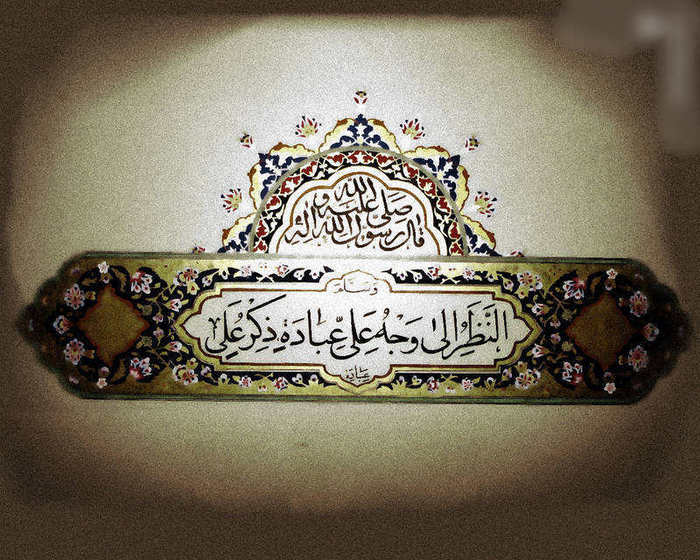 قال رسول الله صلی الله علیه و اله
و سلم
النَّظَرُ اِلیٰ وَجْهِ عَلیٍّ عِبادَة ذِکْرُ عَلِیٍّ
عبادة